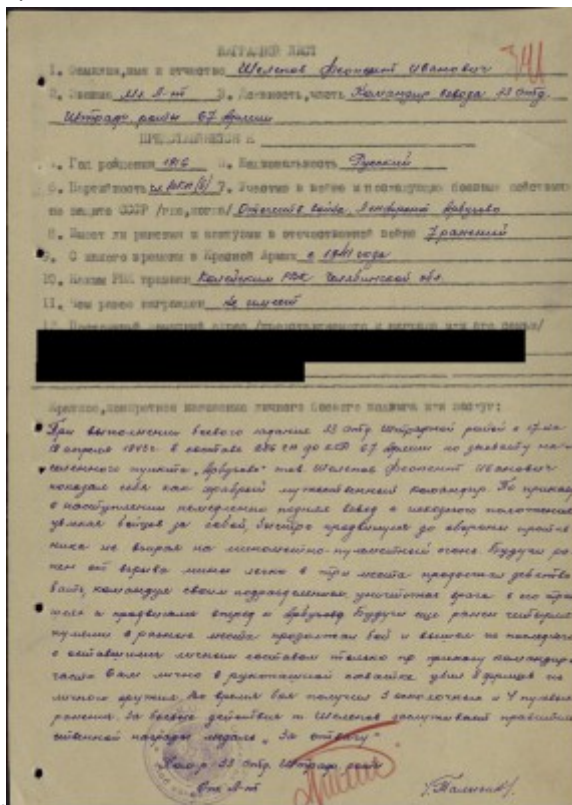 НАГРАДНОЙ ЛИСТ
341
1. Фамилия, имя и отчество Шелепов Феопент Иванович
2. Звание Мл. Л-нт 3. Должность, часть Командир взвода 33 отд.
Штрафн. роты 67 Армии
ПРЕДСТАВЛЯЕТСЯ К
4. Год рождения 5. Национальность Русский
6. Партийность 7. Участие в войне и последующих боевых действиях
по защите СССР /где, когда/ Отечеств. война, Ленфронт Арбузово
8. Имеет ли ранения и контузии в отечественной войне 7 ранений
9. С какого времени в Красной Армии с 1941 года
10. Каким РВК призван Копейским РВК Челябинской обл.
11. Чем ранее награжден не имеет
12. Постоянный домашний адрес /представляемого к награде или его семьи/
Краткое, конкретное изложение личного боевого подвига или заслуг:
При выполнении боевого задания 33 отд. штрафной ротой с 17 на
18 апреля 1943 г. в составе СП 67 Армии по захвату на-
селенного пункта "Арбузово" тов. Шелепов Феопент Иванович
показал себя как храбрый мужественный командир. По приказу
о наступлении немедленно поднял взвод с исходного положения
увлекая бойцов за собой, быстро продвинулся до обороны против
ника не взирая на минометно-пулеметный огонь. Будучи ра
нен от взрыва мины легко в три места продолжал действо
вать, командуя своим подразделением, уничтожая врага в его тран
шеях и продвигаясь вперед к Арбузово. Будучи еще ранен четырьмя
пулями в разные места продолжал бой и вышел из
с оставшимся личным составом только по приказу командира
части. Сам лично в рукопашной схватке убил 8 фрицев из
личного оружия. Во время боя получил 3 осколочных и 4 пулевых
ранения. За боевые действия т. Шелепов заслуживает правитель
ственной награды медаль "За отвагу".
33 отд. Штраф. роты
Л-нт